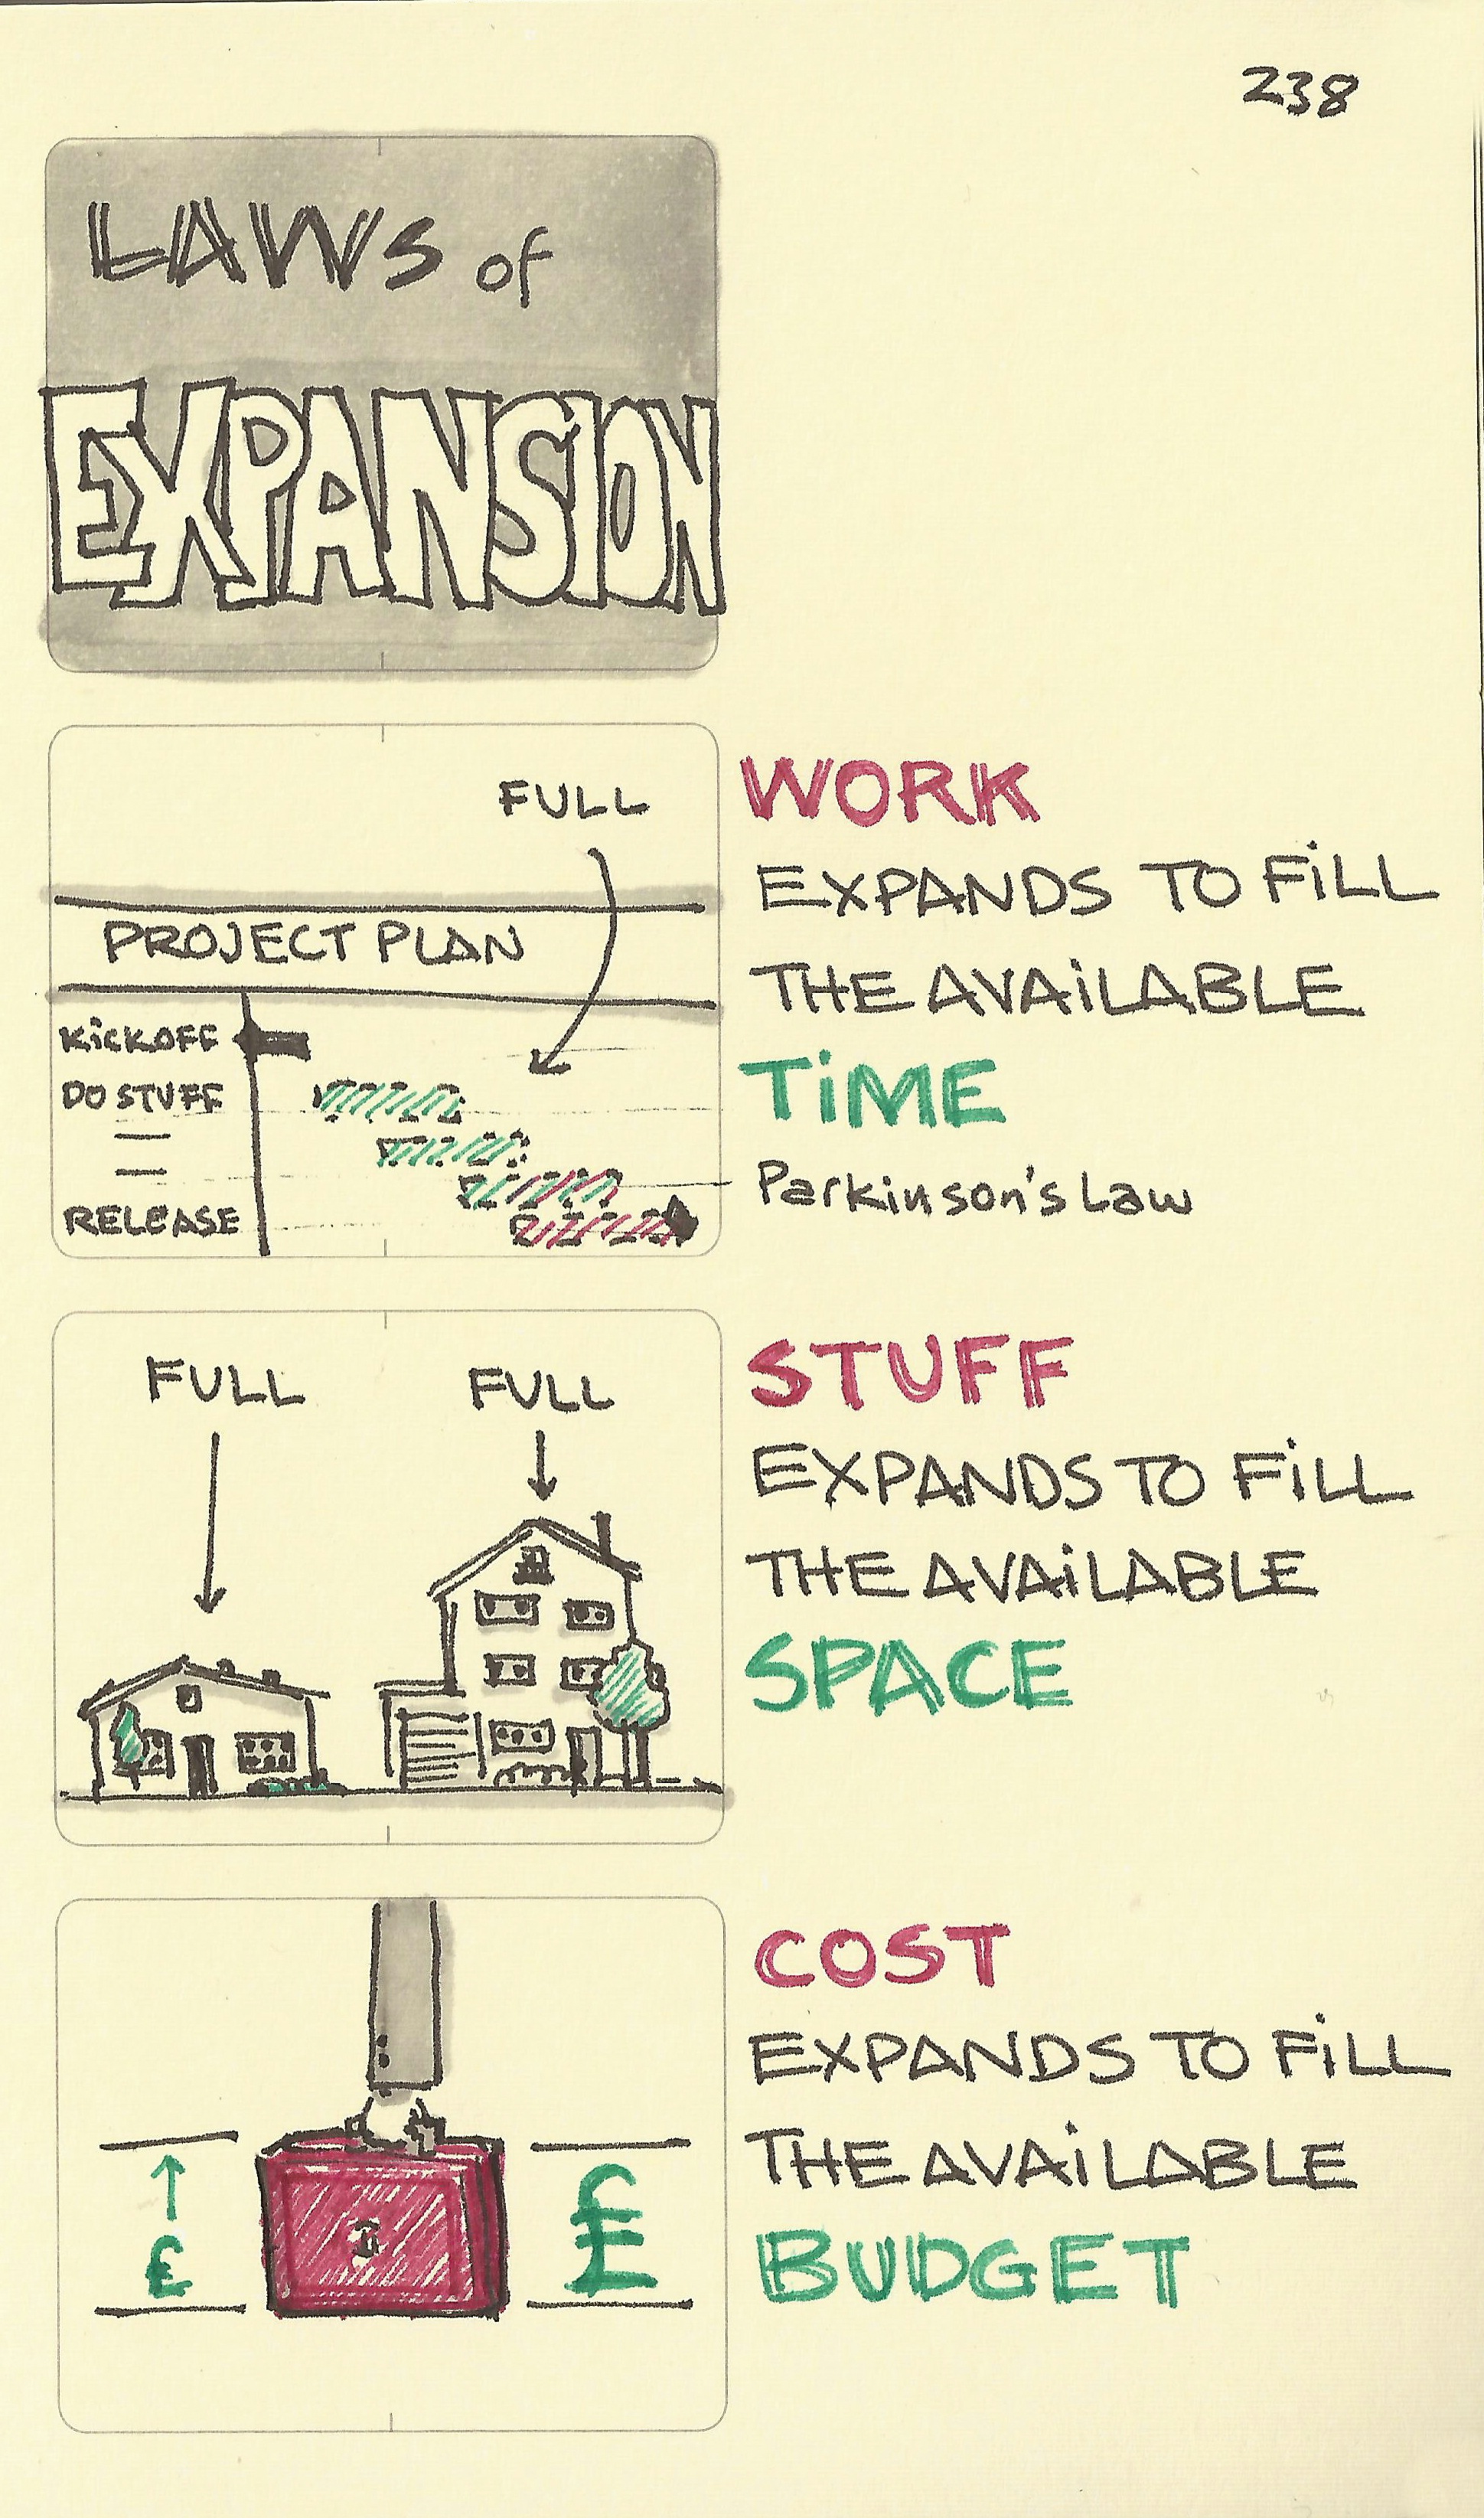 238
LAWS of
EXPANSION
FULL
PROJECT PLAN
KICKOFF
DO STUFF
RELEASE
WORK
EXPANDS TO FILL
THE AVAILABLE
TIME
Parkinson's Law
FULL FULL
STUFF
EXPANDS TO FILL
THE AVAILABLE
SPACE
£
£
COST
EXPANDS TO FILL
THE AVAILABLE
BUDGET